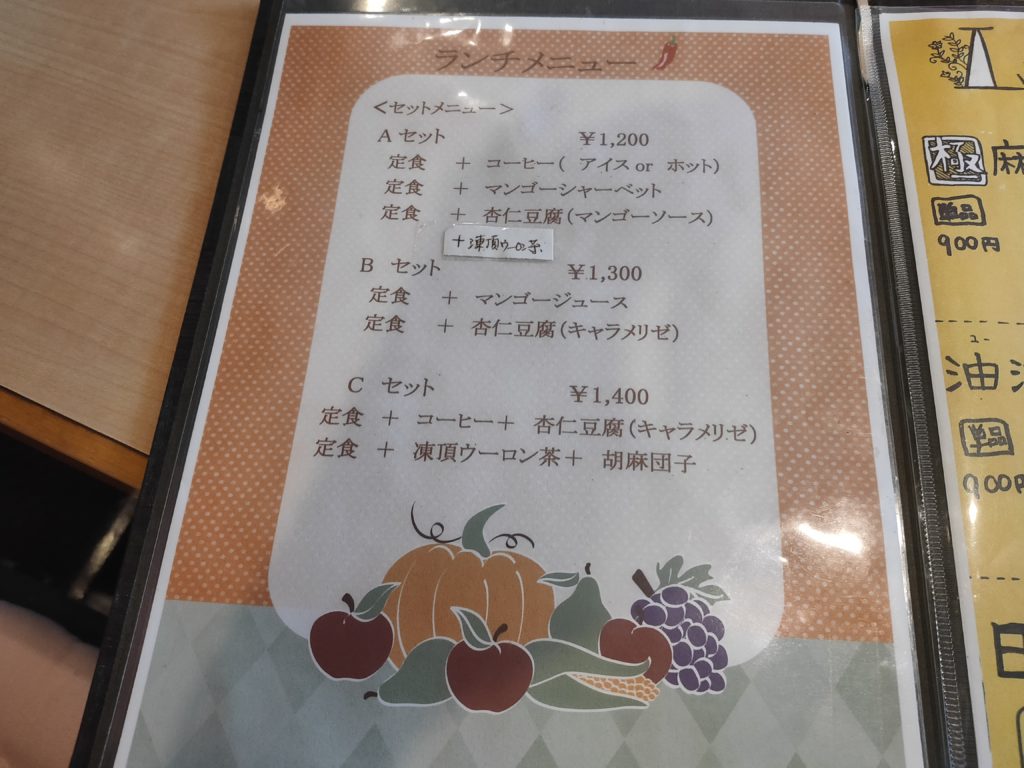 ランチメニュー
＜セットメニュー＞
A セット ￥1,200
定食 ＋ コーヒー( アイス or ホット)
定食 ＋ マンゴーシャーベット
定食 ＋ 杏仁豆腐(マンゴーソース)
＋凍頂ウーロン茶
B セット ￥1,300
定食 ＋ マンゴージュース
定食 ＋ 杏仁豆腐(キャラメリゼ)
C セット ￥1,400
定食 ＋ コーヒー＋ 杏仁豆腐(キャラメリゼ)
定食 ＋ 凍頂ウーロン茶＋ 胡麻団子
極 麻
単品
900円
ユー
油
単品
900円